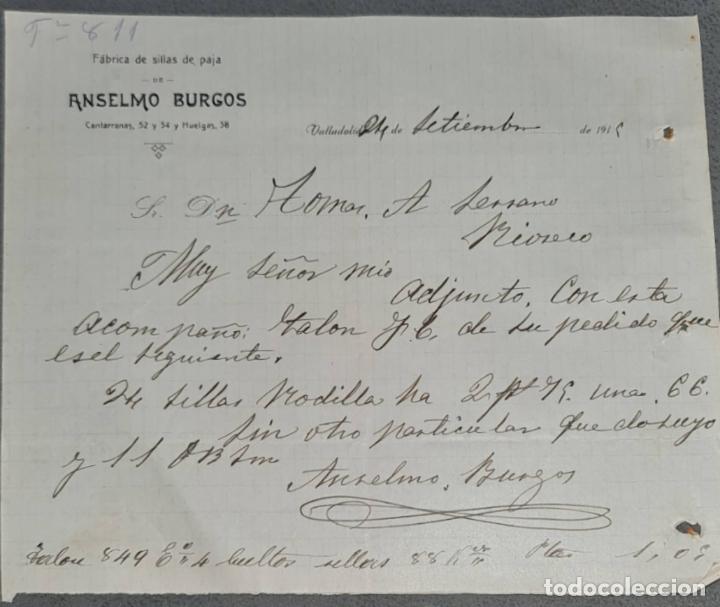 Fª 811
Fábrica de sillas de paja
DE
ANSELMO BURGOS
Cantarranas, 52 y 54 y Huelgas, 38
Valladolid 24 de Setiembre de 191
Sr. Dn Tomas. A Serrano
Rioseco
Muy señor mio
Adjunto. Con esta
acompaño: talon F.C. de su pedido que
es el siguiente.
24 sillas Rodilla ha 2 pts 75. una. 66.
sin otro particular que do suyo
y
Anselmo. Burgos
talon 849 4 bultos sillas 88 K Ptas 1,0
todocoleccion.net